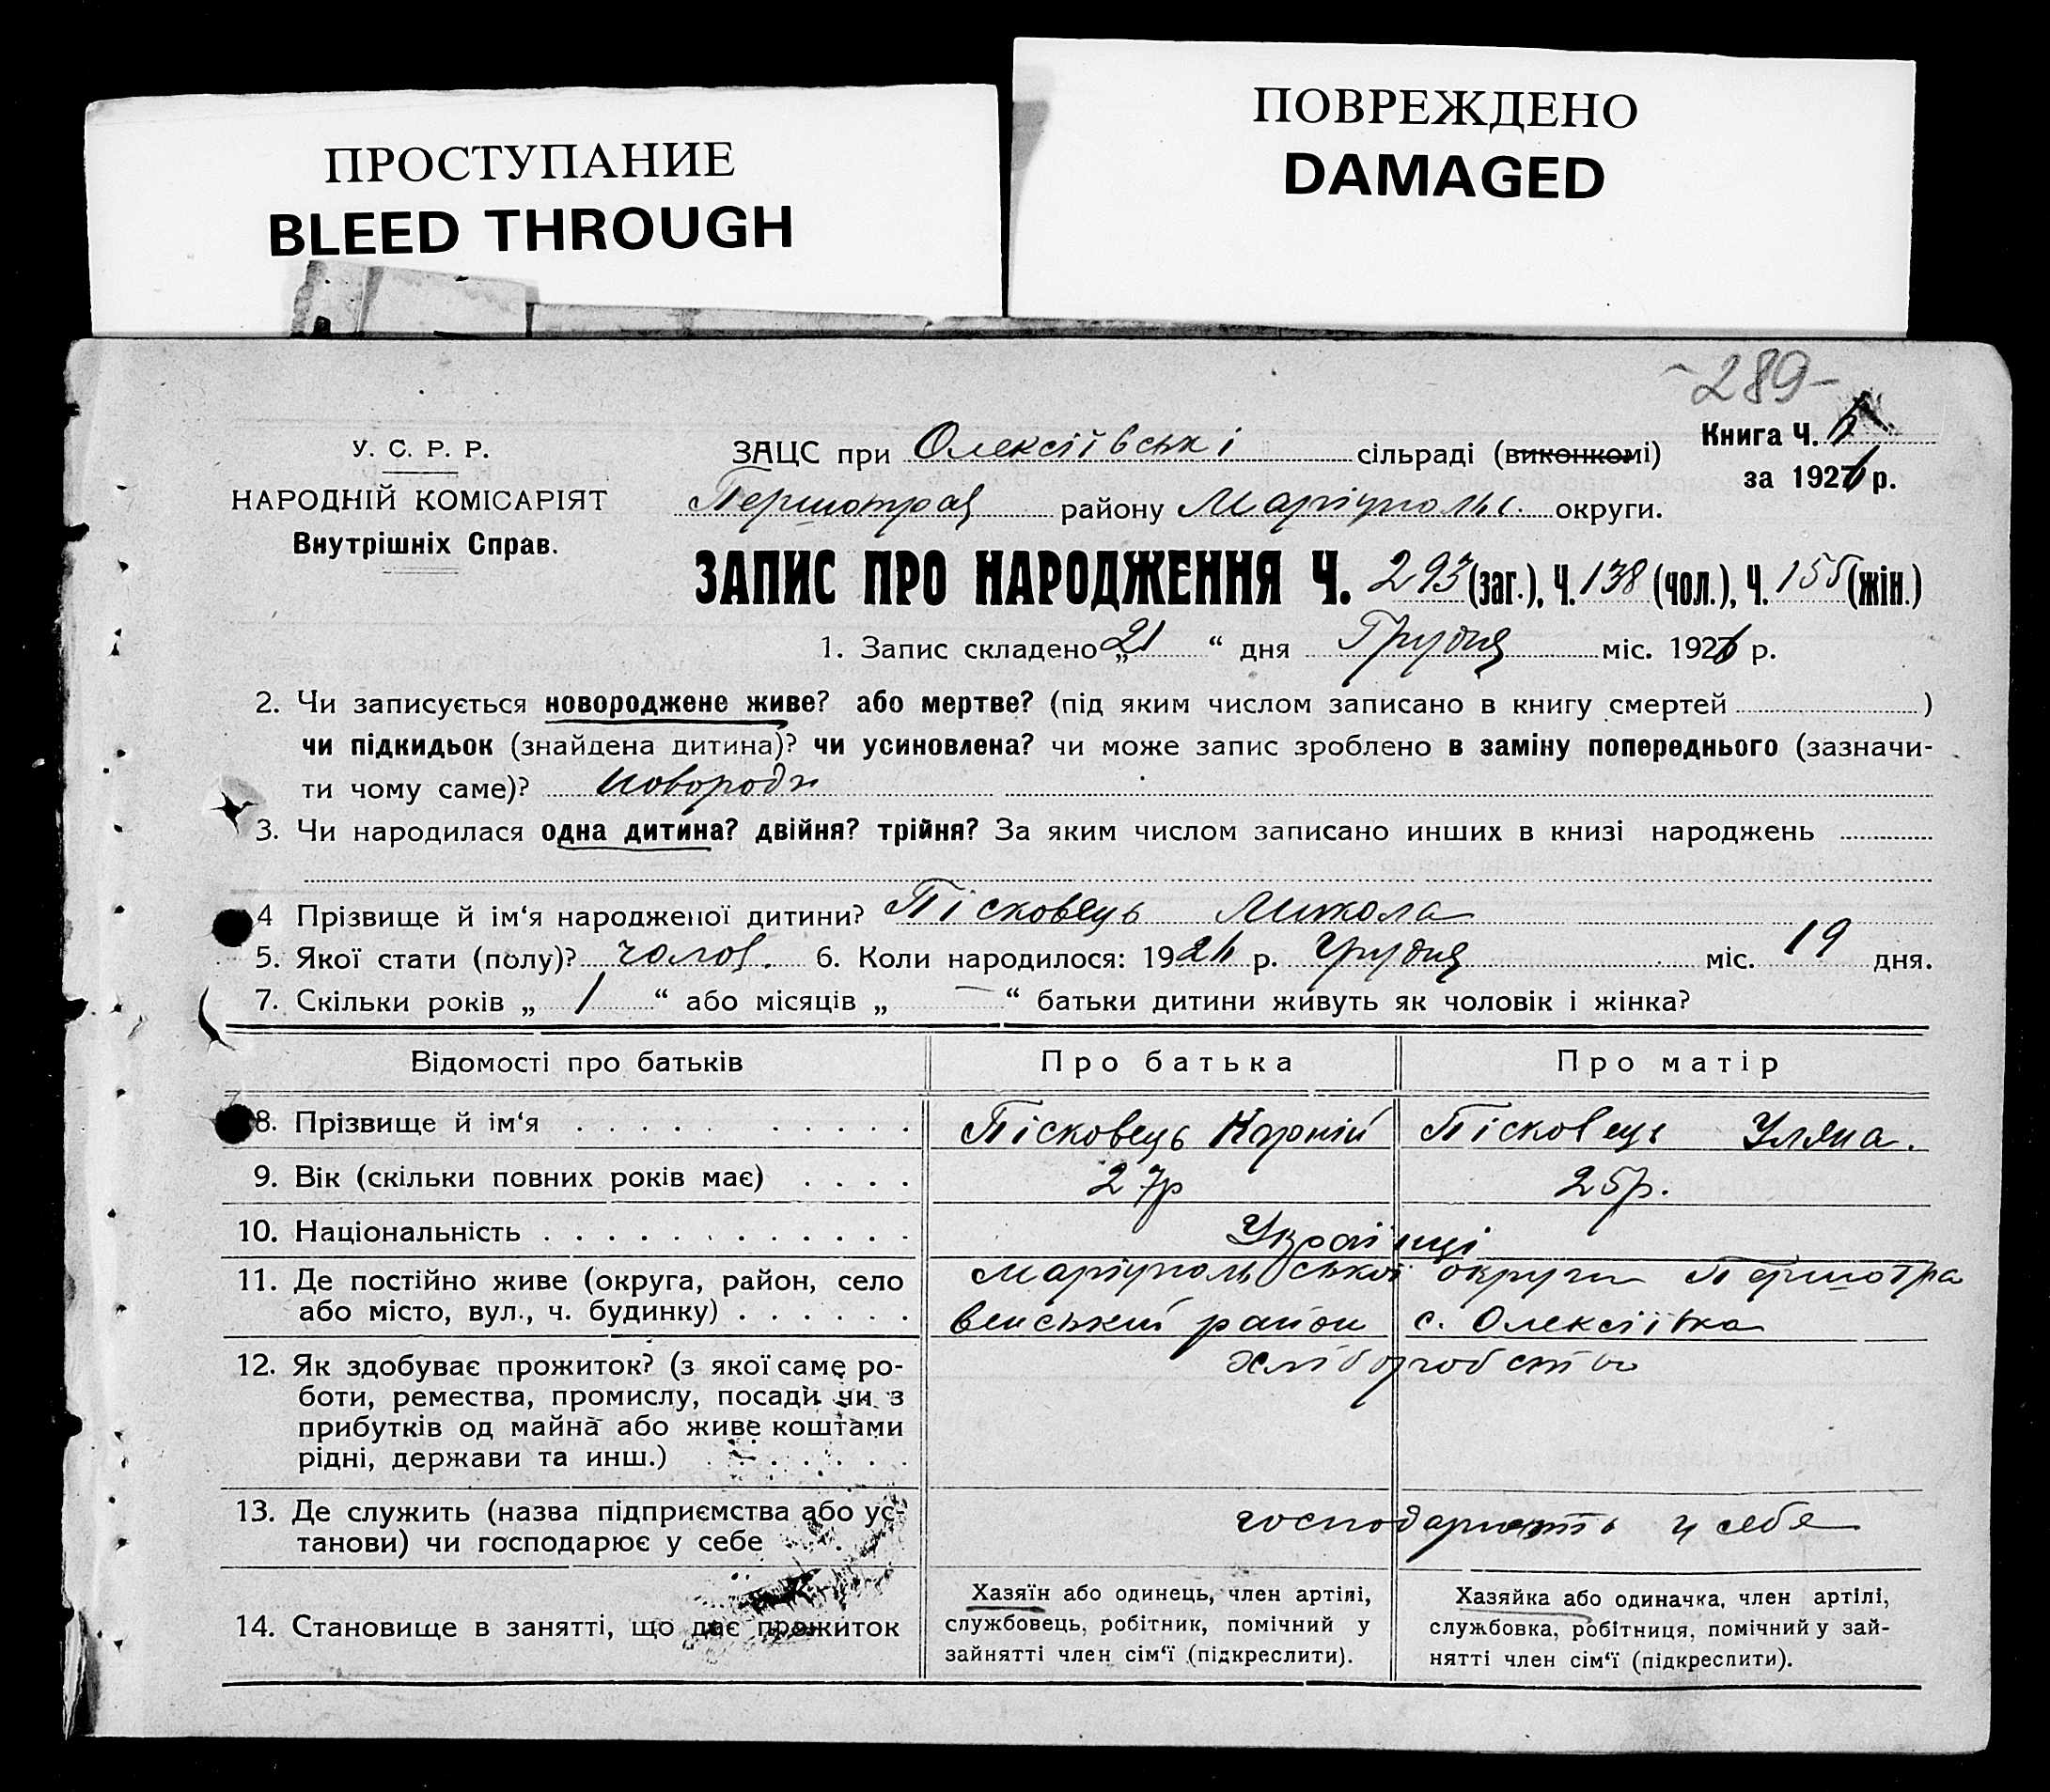 ПРОСТУПАНИЕ
BLEED THROUGH
ПОВРЕЖДЕНО
DAMAGED
-289-
У. С. Р. Р.
НАРОДНІЙ КОМІСАРІЯТ
Внутрішніх Справ.
ЗАЦС при Олексіївські сільраді (виконкомі)
Книга Ч.
за 1926 р.
Першотрав району Маріупольс. округи.
ЗАПИС ПРО НАРОДЖЕННЯ Ч. 293 (заг.), Ч. 138 (чол.), Ч. 155 (жін.)
1. Запис складено „21“ дня Грудня міс. 1926 р.
2. Чи записується новороджене живе? або мертве? (під яким числом записано в книгу смертей )
чи підкидьок (знайдена дитина)? чи усиновлена? чи може запис зроблено в заміну попереднього (зазначи-
ти чому саме)? новородж
3. Чи народилася одна дитина? двійня? трійня? За яким числом записано инших в книзі народжень
4 Прізвище й ім‘я народженої дитини? Пісковець Микола
5. Якої стати (полу)? чолов. 6. Коли народилося: 1926 р. Грудня міс. 19 дня.
7. Скільки років „ 1 “ або місяців „ — “ батьки дитини живуть як чоловік і жінка?
Відомості про батьків Про батька Про матір
8. Прізвище й ім‘я Пісковець Корній Пісковець Уляна.
9. Вік (скільки повних років має) 27р 25р.
10. Національність Українці
11. Де постійно живе (округа, район, село Маріупольської округи Першотра
або місто, вул., ч. будинку) венський район с. Олексіївка
12. Як здобуває прожиток? (з якої саме ро- хліборобство
боти, ремества, промислу, посади чи з
прибутків од майна або живе коштами
рідні, держави та инш.)
13. Де служить (назва підприємства або ус- господарюють у себе
танови) чи господарює у себе
14. Становище в занятті, що дає прожиток
Хазяїн або одинець, член артілі,
службовець, робітник, помічний у
зайнятті член сім‘ї (підкреслити).
Хазяйка або одиначка, член артілі,
службовка, робітниця, помічний у зай-
нятті член сім‘ї (підкреслити).